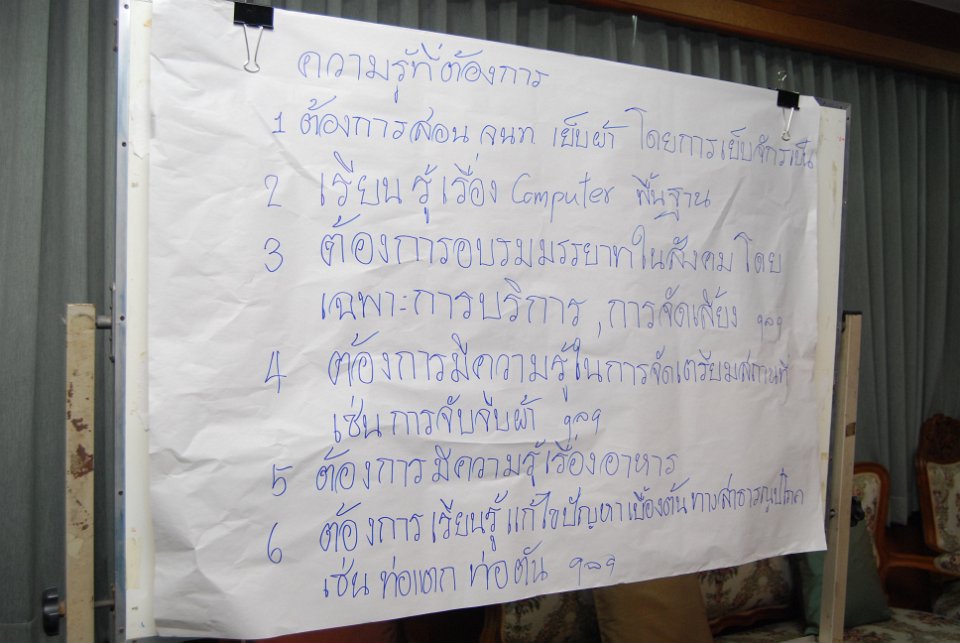 ความรู้ที่ต้องการ
1 ต้องการสอน จนท เย็บผ้า โดยการเย็บจักรเป็น
2 เรียนรู้เรื่อง Computer พื้นฐาน
3 ต้องการอบรมมรรยาทในสังคมโดย
เฉพาะการบริการ, การจัดเลี้ยง ฯลฯ
4 ต้องการมีความรู้ในการจัดเตรียมสถานที่
เช่น การจับจีบผ้า ฯลฯ
5 ต้องการมีความรู้เรื่องอาหาร
6 ต้องการเรียนรู้แก้ไขปัญหาเบื้องต้นทางสาธารณูปโภค
เช่น ท่อแตก ท่อตัน ฯลฯ